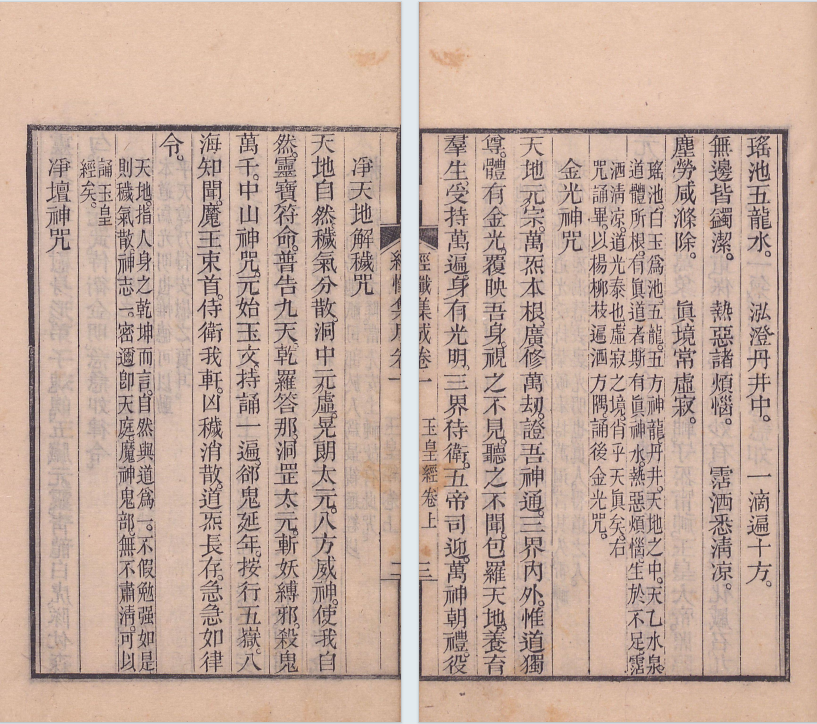 瑤池五龍水。 泓澄丹井中。 一滴遍十方。
無邊皆蠲潔。 熱惡諸煩惱。 霑洒悉淸凉。
塵勞咸滌除。 眞境常虛寂。
瑤池。白玉爲池。五龍。五方神龍。丹井。天地之中。天乙水泉
道體所根。有眞道者。斯有眞神水。熱惡煩惱。生於不足。霑
洒淸凉。道光泰也。虛寂之境。肖乎天眞矣。右
咒誦畢。以楊柳枝遍洒方隅。誦後金光咒。
金光神咒
天地元宗。萬炁本根。廣修萬刼。證吾神通。三界內外。惟道獨
尊。體有金光。覆映吾身。視之不見。聽之不聞。包羅天地。養育
羣生。受持萬遍。身有光明。三界侍衛。五帝司迎。萬神朝禮。役
經懺集成卷一 玉皇經卷上 三
經懺集成卷一
淨天地解穢咒
天地自然。穢氣分散。洞中元虛。晃朗太元。八方威神。使我自
然。靈寶符命。普告九天。乾羅答那。洞罡太元。斬妖縛邪。殺鬼
萬千。中山神咒。元始玉文。持誦一遍。卻鬼延年。按行五嶽。八
海知聞。魔王束首。侍衛我軒。凶穢消散。道炁長存。急急如律
令。
天地。指人身之乾坤而言。自然與道爲一。不假勉强。如是
則穢氣散。神志一。密邇卽天庭。魔神鬼部。無不肅淸。可以
誦玉皇
經矣。
淨壇神咒